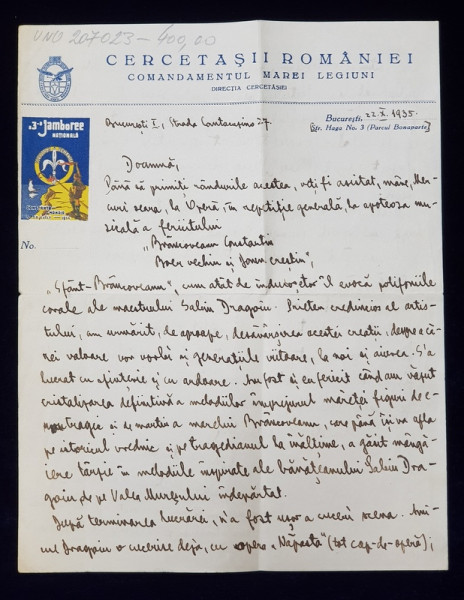 VNB 207023 - 400,00
CERCETAȘII ROMÂNIEI
COMANDAMENTUL MAREI LEGIUNI
DIRECȚIA CERCETĂȘIEI
București, 22.X.1935.
Str. Haga No. 3 (Parcul Bonaparte)
București I, Strada Cantacuzino 27.
a 3-a Jamboree
NAȚIONALĂ
No.
Doamnă,
Până să primiți rândurile acestea, veți fi asistat, mâne, Mer-
curi seara, la Operă, în repetiție generală, la apoteoza mu-
zicală a fericitului
"Brâncoveanu Constantin
Boer vechiu și Domn creștin";
"Sfânt-Brâncoveanu", cum atât de înduioșetor îl evocă polifoniile
corale ale maestrului Sabin Drăgoiu. Prieten credincios al artis-
tului, am urmărit, de aproape, desăvârșirea acestei creații, despre a că-
rei valoare vor vorbi și generațiile viitoare, la noi și aiurea. S'a
lucrat cu sfințenie și cu ardoare. Am fost și eu fericit când am văzut
cristalizarea definitivă a melodiilor împrejurul măreței figuri de
tragic și martir a marelui Brâncoveanu, care până îi va afla
pe istoricul vrednic și pe tragedianul la înălțime, a găsit mângâ-
iere târzie în melodiile inspirate ale bănățeanului Sabin Dră-
goiu de pe Valea Murșului îndepărtat.
După terminarea lucrării, n'a fost ușor a cuceri scena. Ami-
cul Drăgoiu o cucerise deja, cu opera "Năpasta" (tot cap-de-operă);